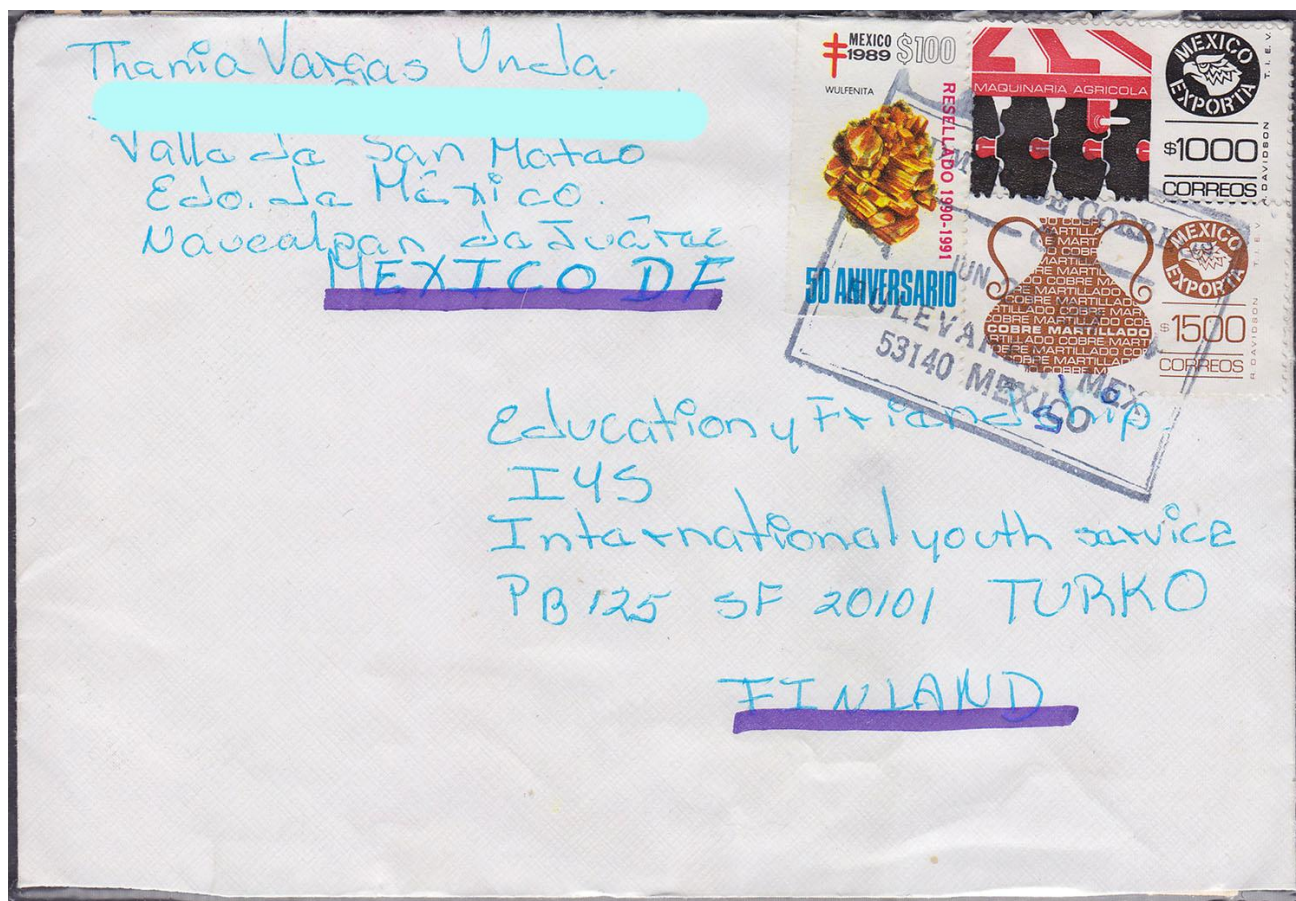 Thania Vargas Unda.
Valle de San Mateo
Edo. de México.
Naucalpan de Juárez
MEXICO DF
MEXICO
1989 $100
WULFENITA
RESELLADO 1990-1991
50 ANIVERSARIO
MAQUINARIA AGRICOLA
MEXICO EXPORTA
T. I. E. V.
$1000
CORREOS
R. DAVIDSON
COBRE MARTILLADO
MEXICO EXPORTA
T. I. E. V.
$1500
CORREOS
R. DAVIDSON
DE CORREOS
JUN
BULEVARES, MEX
53140 MEXICO
Education y Friendship.
IYS
International youth service
PB 125 SF 20101 TURKO
FINLAND